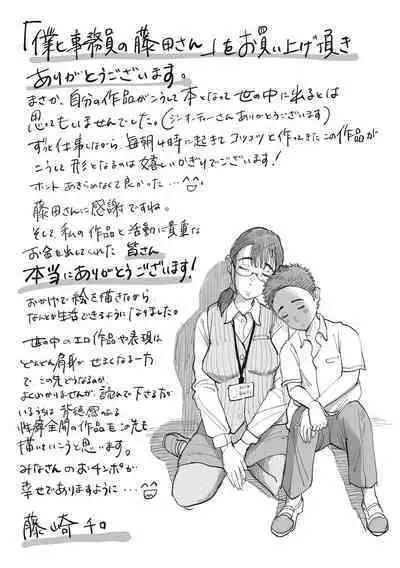 「僕と事務員の藤田さん」をお買い上げ頂き
ありがとうございます。
まさか、自分の作品がこうして本になって世の中に出るとは
思ってもいませんでした。(ジーオーティーさんありがとうございます)
ずっと仕事しながら、毎朝4時に起きてコツコツと作ってきたこの作品が
こうして形となるのは嬉しいかぎりでございます!
ホントあきらめなくて良かった…
藤田さんに感謝ですね。
そして私の作品と活動に貴重な
お金を出してくれた皆さん
本当にありがとうございます!
おかげで絵を描きながら
なんとか生活できるようになりました。
世の中のエロ作品や表現は
どんどん肩身がせまくなる一方
で、この先どうなるのか
よくわかりませんが、読んで下さる方が
いるうちは背徳感のある
性癖全開の作品をこの先も
描いていこうと思います。
みなさんのおチンポが
幸せでありますように…
藤崎チロ